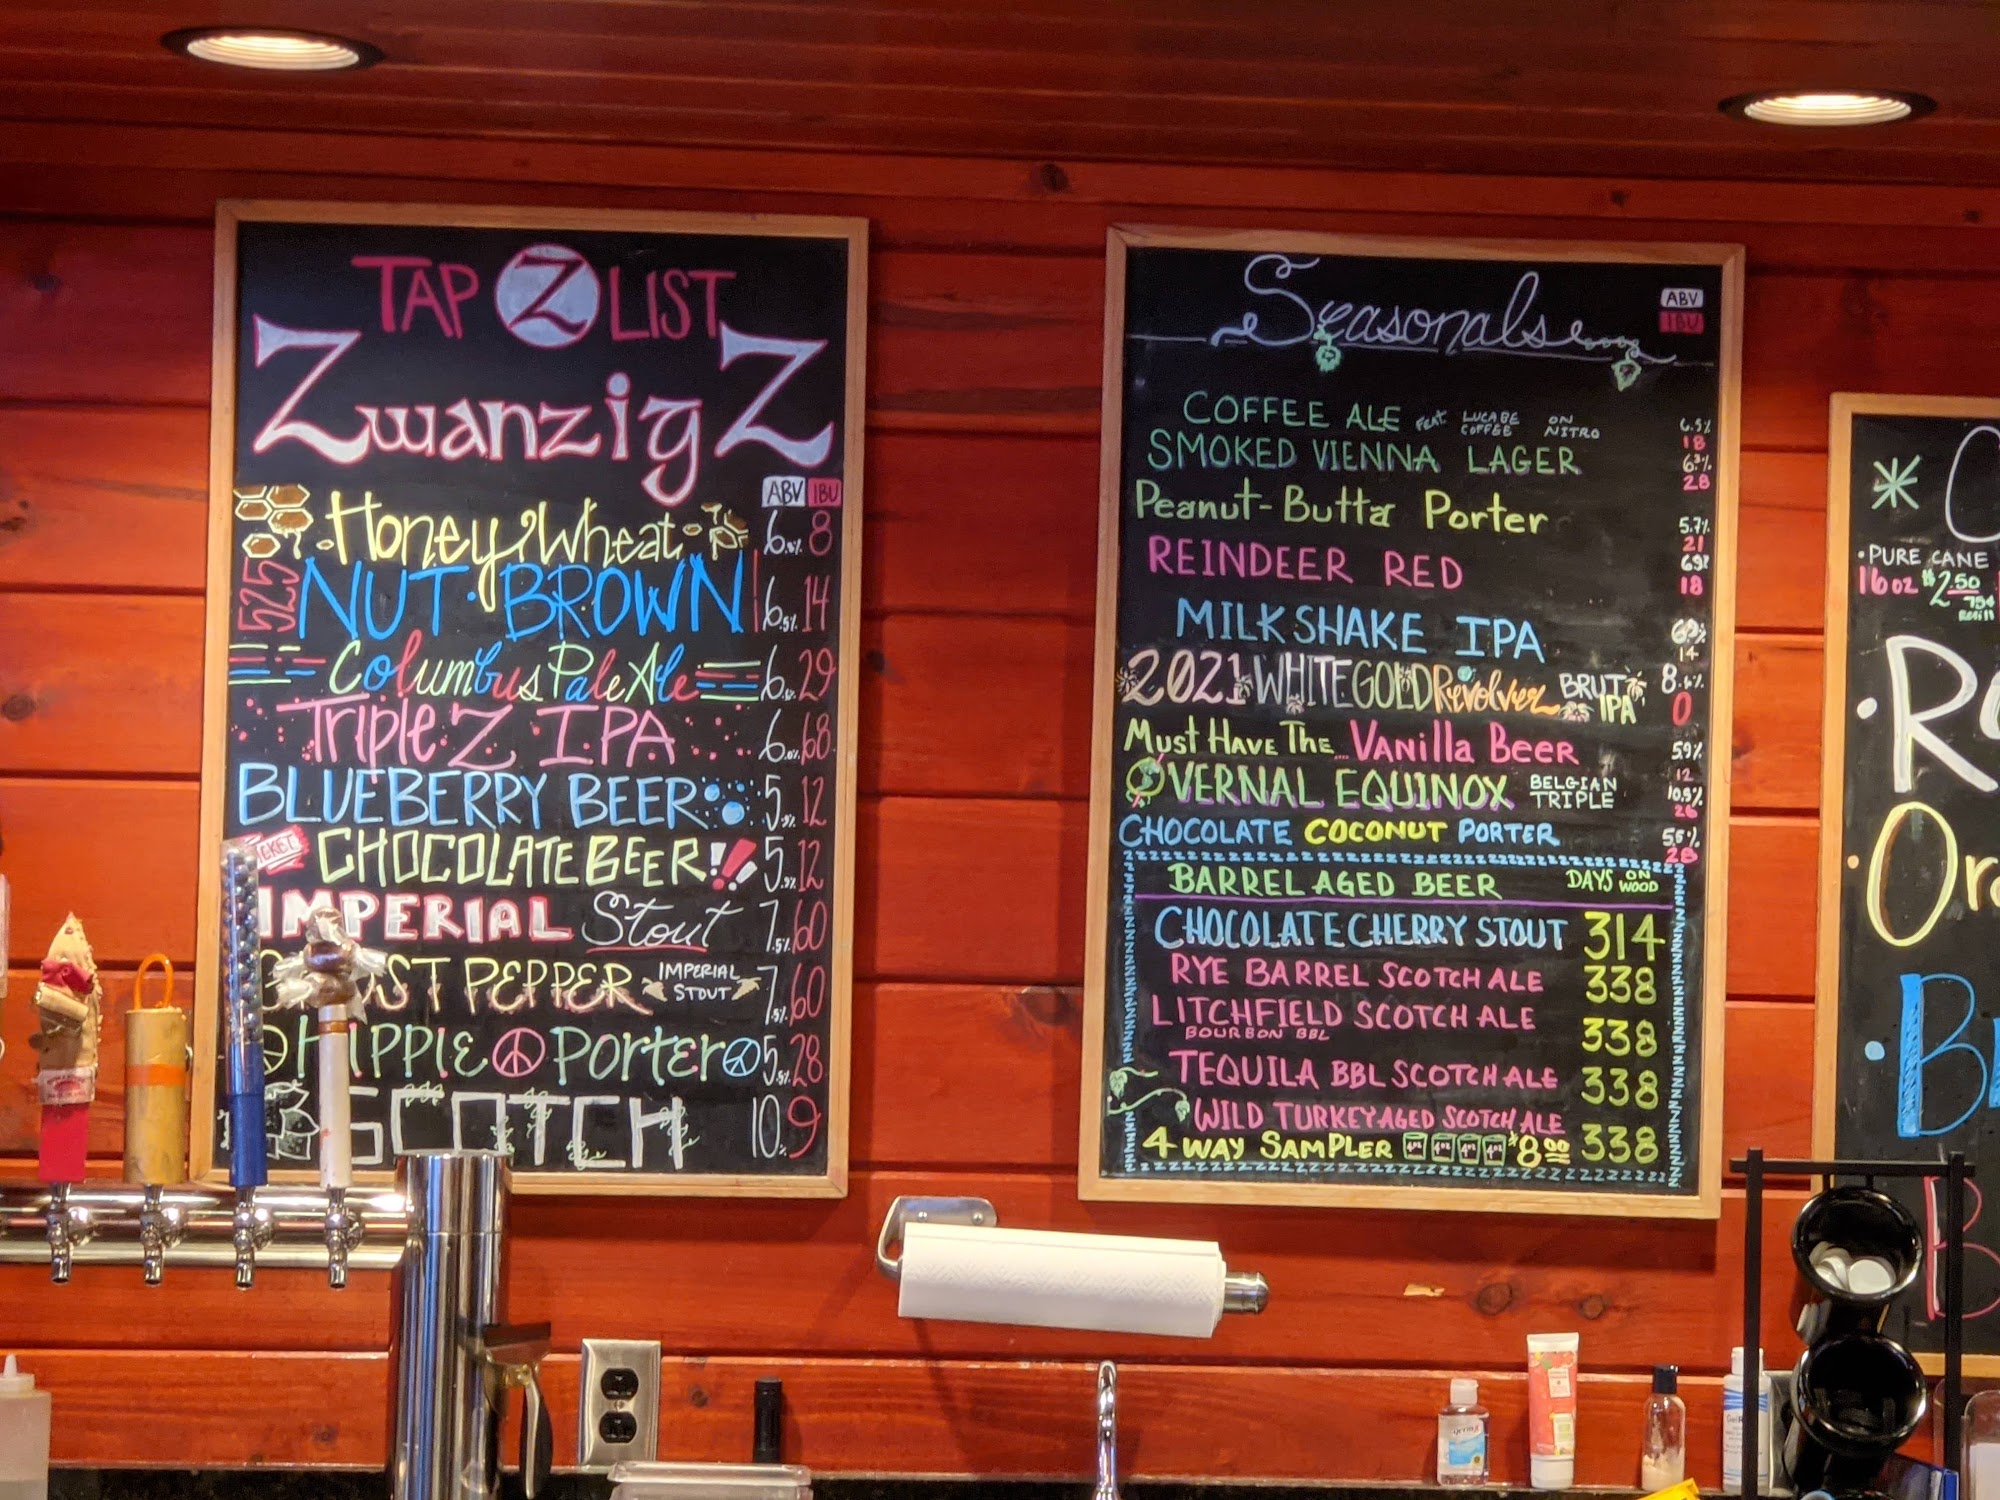 TAP Z LIST
ZwanzigZ
ABV IBU
Honey Wheat 8
525 NUT • BROWN 6.5% 14
Columbus Pale Ale 29
Triple Z IPA 6.0% 68
BLUEBERRY BEER 12
CHOCOLATE BEER!! 12
IMPERIAL Stout 7.5% 60
PEPPER IMPERIAL STOUT 7.5% 60
HIPPIE PORTER 28
SCOTCH 10% 9
Seasonals
ABV
IBU
COFFEE ALE FEAT LUCABE COFFEE ON NITRO
18
SMOKED VIENNA LAGER
28
Peanut-Butta Porter 5.7%
21
REINDEER RED
18
MILKSHAKE IPA
14
2021 WHITE GOLD Revolver BRUT IPA
0
Must Have The Vanilla Beer 5.9%
12
VERNAL EQUINOX BELGIAN TRIPLE
26
CHOCOLATE COCONUT PORTER
28
BARREL AGED BEER DAYS ON WOOD
CHOCOLATE CHERRY STOUT 314
RYE BARREL SCOTCH ALE 338
LITCHFIELD SCOTCH ALE 338
BOURBON BBL
TEQUILA BBL SCOTCH ALE 338
WILD TURKEY AGED SCOTCH ALE 338
4 WAY SAMPLER 4oz 4oz 4oz 4oz $8.00
• PURE CANE
16oz $2.50
75¢
Refill